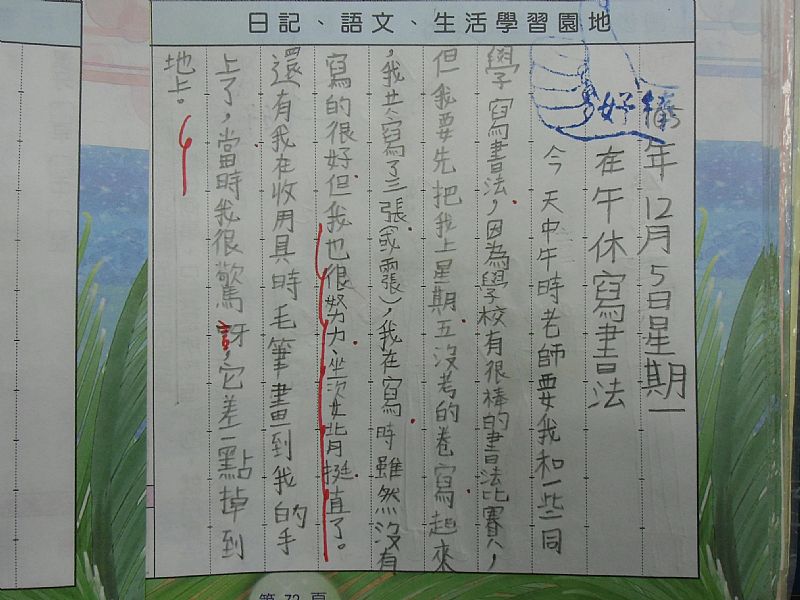 日記、語文、生活學習園地
好棒
年12月5日星期一
在午休寫書法
今天中午時老師要我和一些同
學寫書法，因為學校有很棒的書法比賽，
但我要先把我上星期五沒考的卷寫起來
，我共寫了三張(或零張)，我在寫時雖然沒有
寫的很好但我也很努力、坐姿背挺直了。
還有我在收用具時毛筆畫到我的手
上了，當時我很驚訝，它差一點掉到
地上。
第72頁